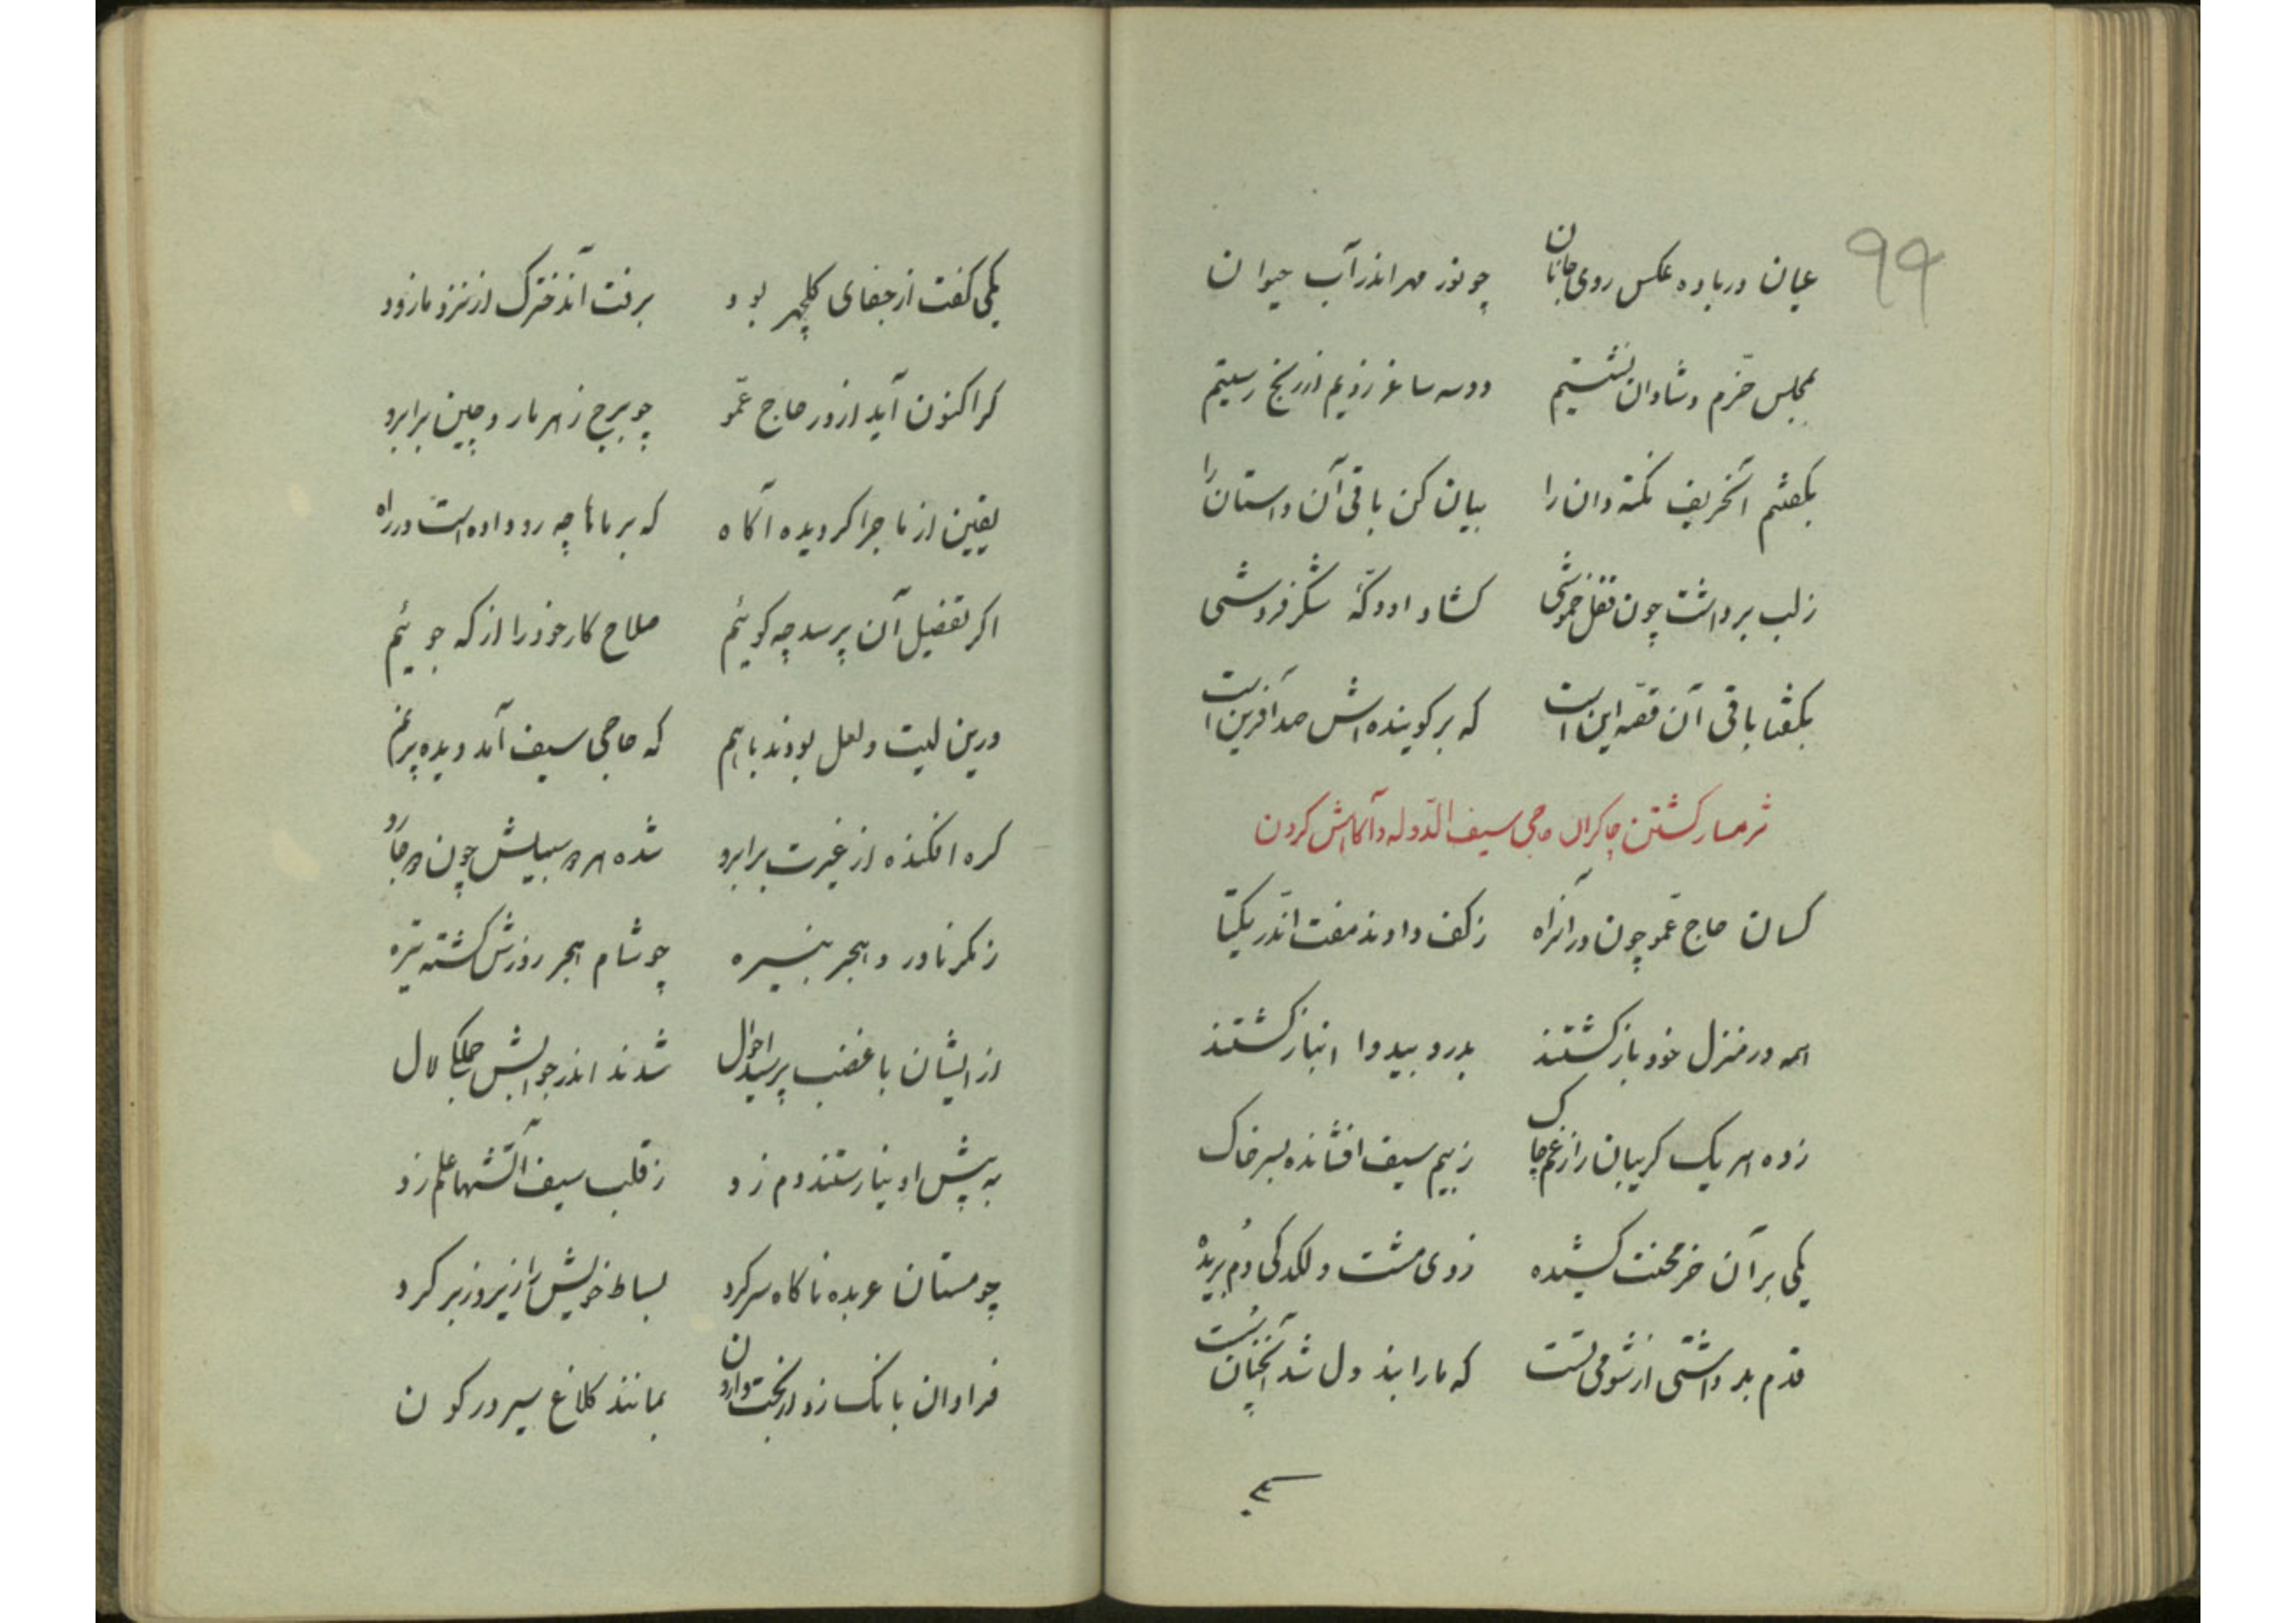 ۹۹
عیان در باده عکس روی جانان چو نور مهر اندر آب حیوان
بمجلس خرّم و شادان نشستیم دو سه ساغر زدیم از رنج رستیم
بگفتم آنحریف نکته دان را بیان کن باقی آن داستان را
ز لب برداشت چون قفل خموشی گشاد او دکّهٔ شکر فروشی
بگفتا باقی آن قصّه این است که بر گوینده‌اش صد آفرین است
شرمسار گشتن چاکران حاجی سیف الدّوله و آگاهش کردن
کسان حاج عمّو چون در آنراه ز کف دادند مفت آندرّ یکتا
همه در منزل خود باز گشتند بدرد بیدوا انباز گشتند
زده هر یک گریبان را ز غم چاک ز بیم سیف افشانده بسر خاک
یکی بر آن خر محنت کشیده زدی مشت و لگد کی دُم بریده
قدم بد داشتی از شومی تست که ما را بند دل شد آنچنان سُست
یکی
یکی گفت از جفای گلچهر بود برفت آندخترک از نزد ما زود
گر اکنون آید از در حاج عمّو چو برج زهرمار و چین بر ابرو
یقین از ماجرا گردیده آگاه که بر ماها چه رو داده است در راه
اگر تفضیل آن پرسد چه گوئیم صلاح کار خود را از که جوئیم
درین لیت و لعل بودند باهم که حاجی سیف آمد دیده پر نم
گره افکنده از غیرت بر ابرو شده هر سبیلش چون جارو
ز مکر نادر و هجر بنیره چو شام هجر روزش گشته تیره
از ایشان با غضب پرسید احوال شدند اندر جوابش جملگی لال
به پیش او نیارستند دم زد ز قلب سیف آتشها علم زد
چو مستان عربده ناگاه سر کرد بساط خویش را زیر و زبر کرد
فراوان بانگ زد از بخت وارون بمانند کلاغ سیر در کون